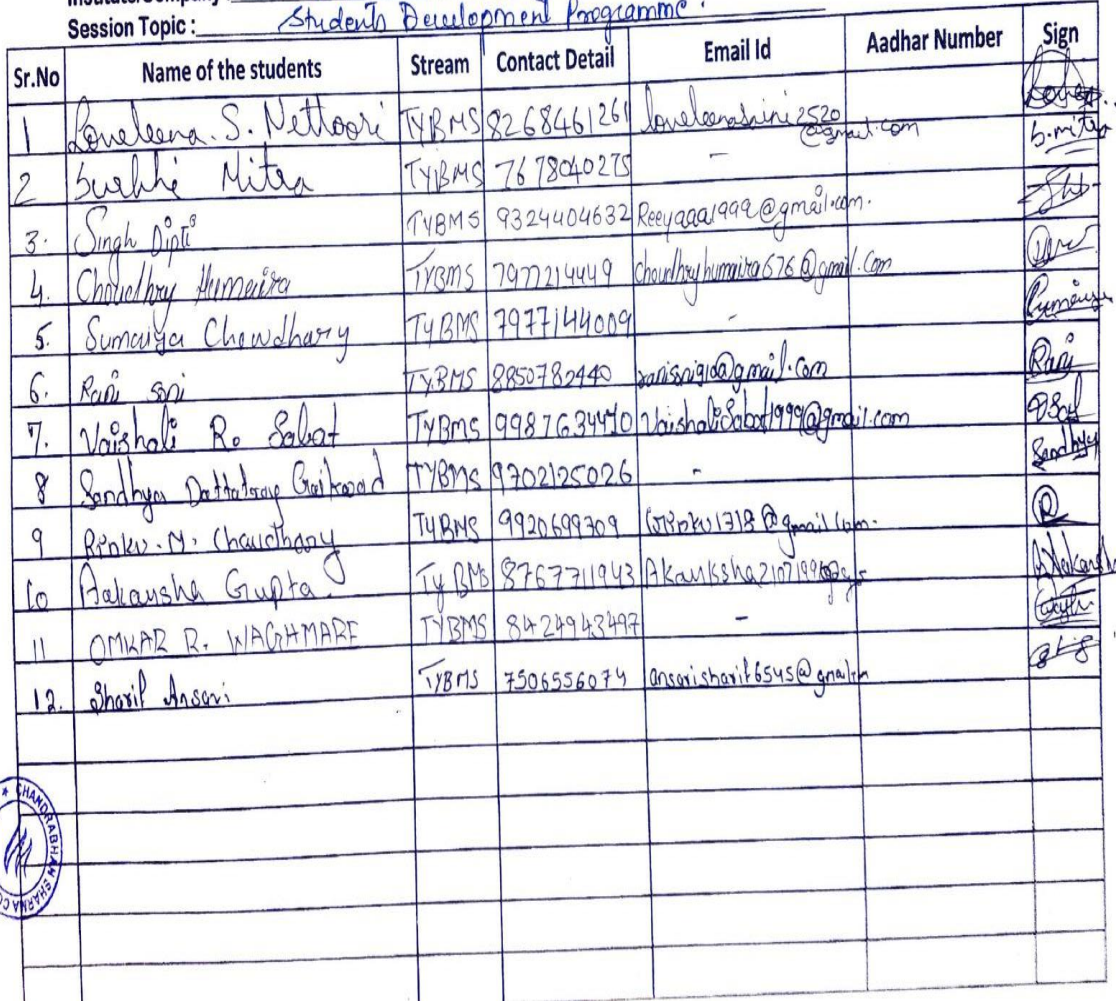 Session Topic : Students Development Programme.
Sr.No Name of the students Stream Contact Detail Email Id Aadhar Number Sign
1 Loveleena. S. Nettoori TYBMS 8268461261 loveleenashini2520@gmail.com
2 Surbhi Mitra TYBMS 7678040275 - S.mitra
3. Singh Dipti TYBMS 9324404632 Reeyaaa1999@gmail.com.
4. Choudhry Humaira TYBMS 7977214449 choudhryhumaira676@gmail.com
5. Sumaiya Chowdhary TYBMS 7977144009 -
6. Rani soni TYBMS 8850782440 Rani
7. Vaishali R. Sabat TYBMS 9987634470 VaishaliSabat1999@gmail.com
8 Sandhya Dattatray Gaikwad TYBMS 9702125026 - Sandhya
9 Rinku. M. Chaudhary TYBMS 9920699709 R
10 Aakansha Gupta. TYBMS 8767711943
11 OMKAR R. WAGHMARE TYBMS 8424943497 -
12. Sharif Ansari TYBMS 7506556074
CHANDRABHAN SHARMA CO